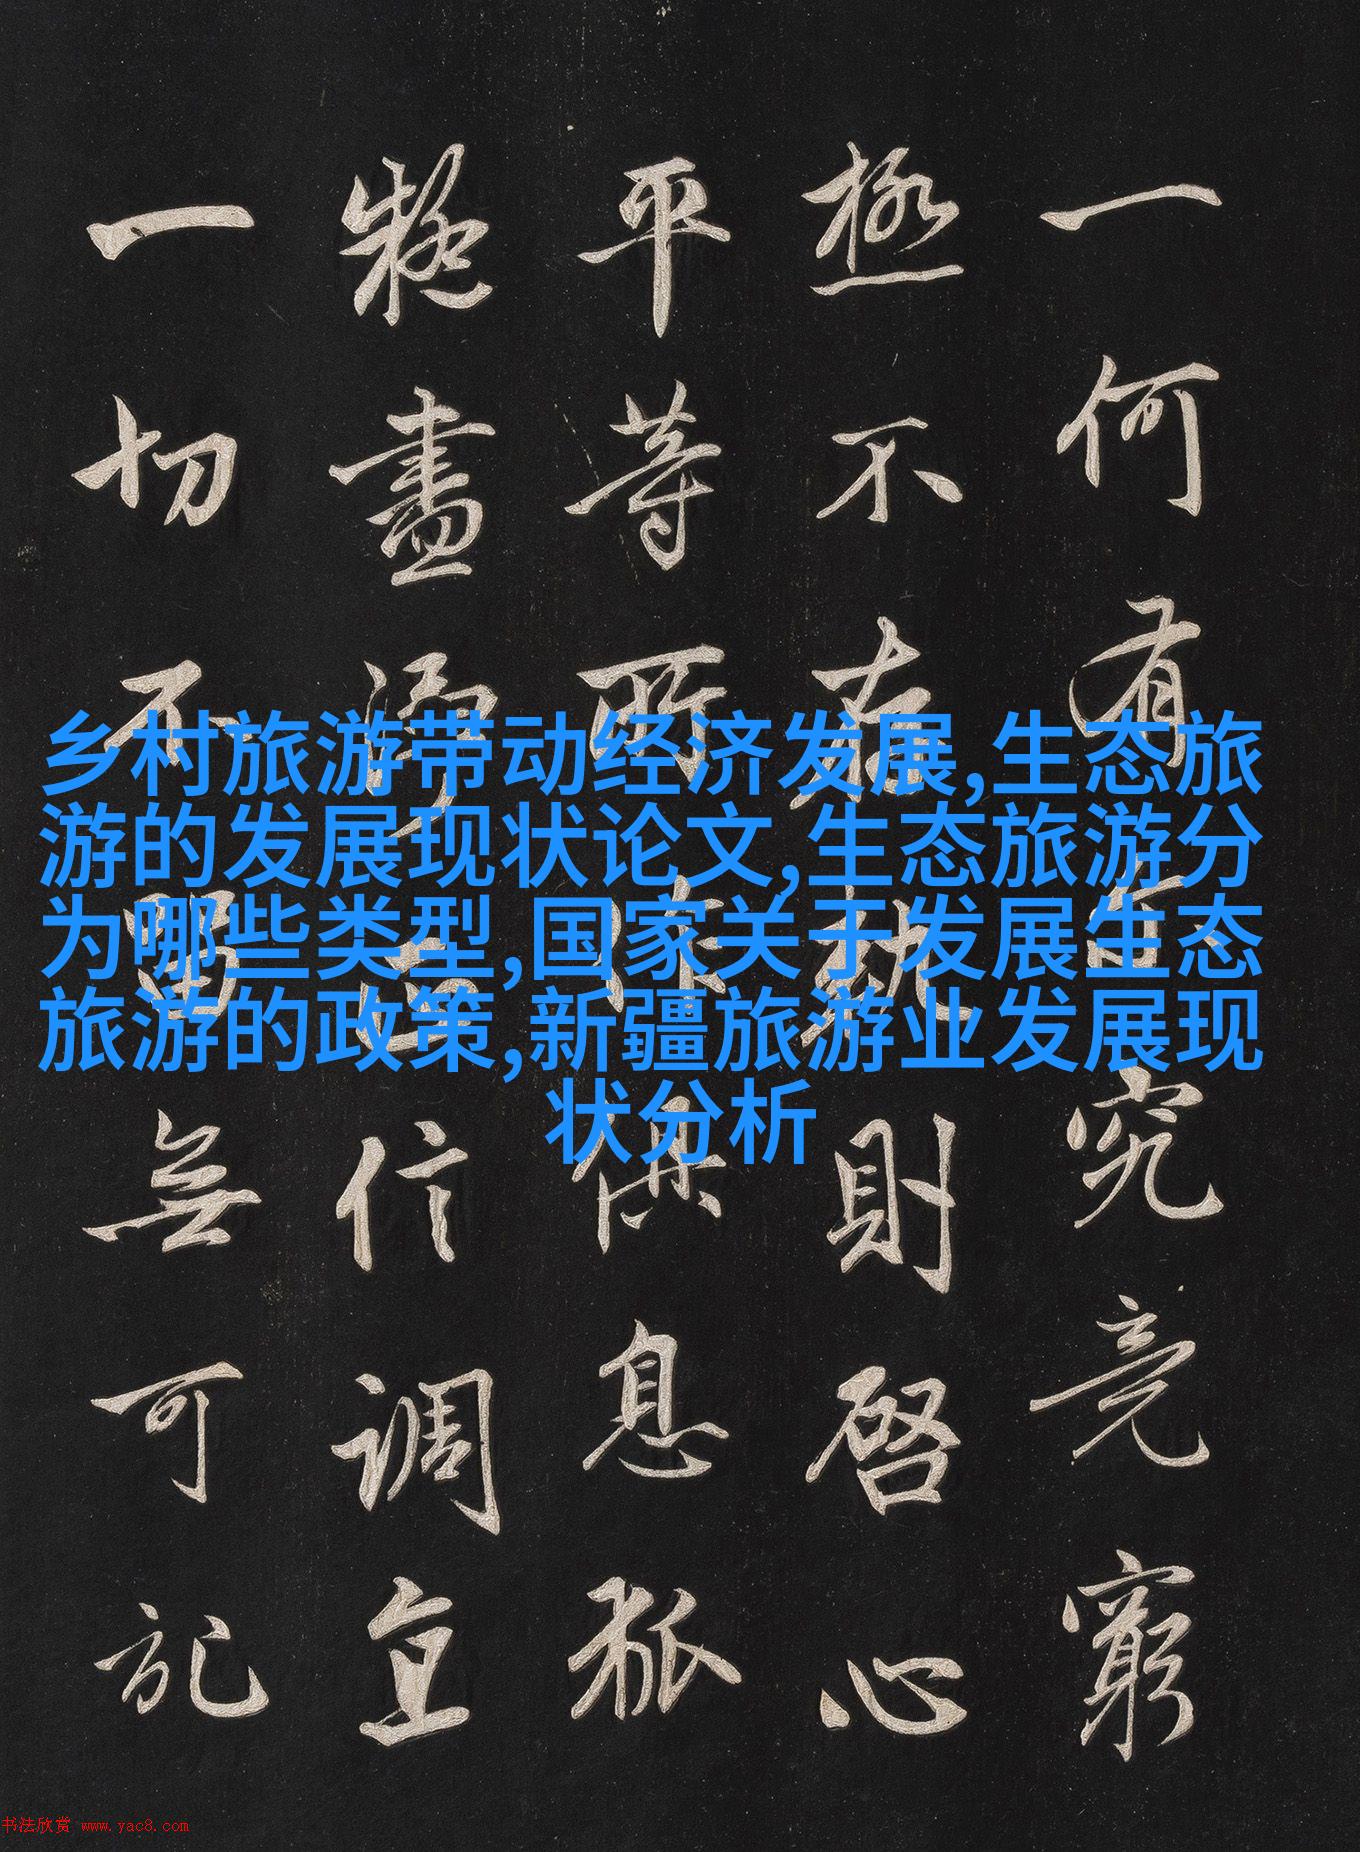 一何有尔究竟窮
極不存軌則啓心
平等所作俱息狐
疑盡淨正信調直
一切不留無可記
乡村旅游带动经济发展,生态旅
游的发展现状论文,生态旅游分
为哪些类型,国家关于发展生态
旅游的政策,新疆旅游业发展现
状分析
书法欣赏 www.yac8.com